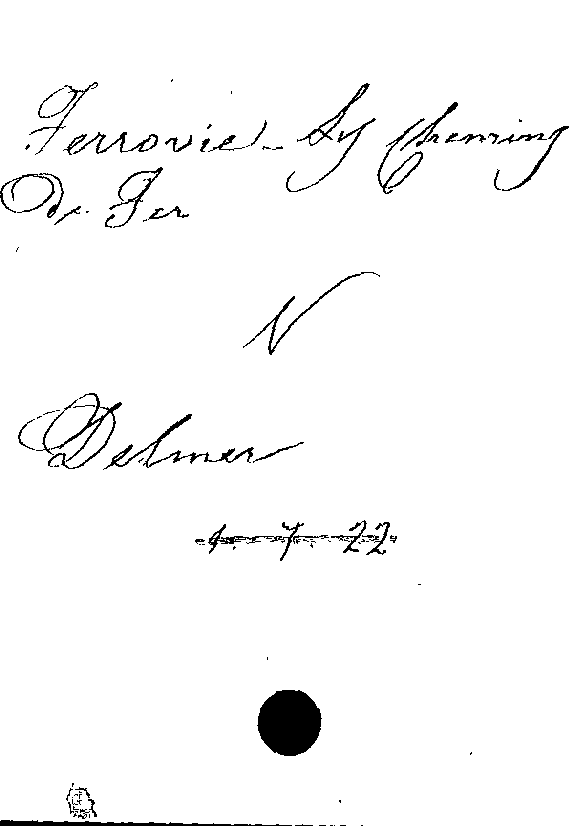 Ferrovie - Sy Chemring
De Fer
N
Delmer
1. 7. 22